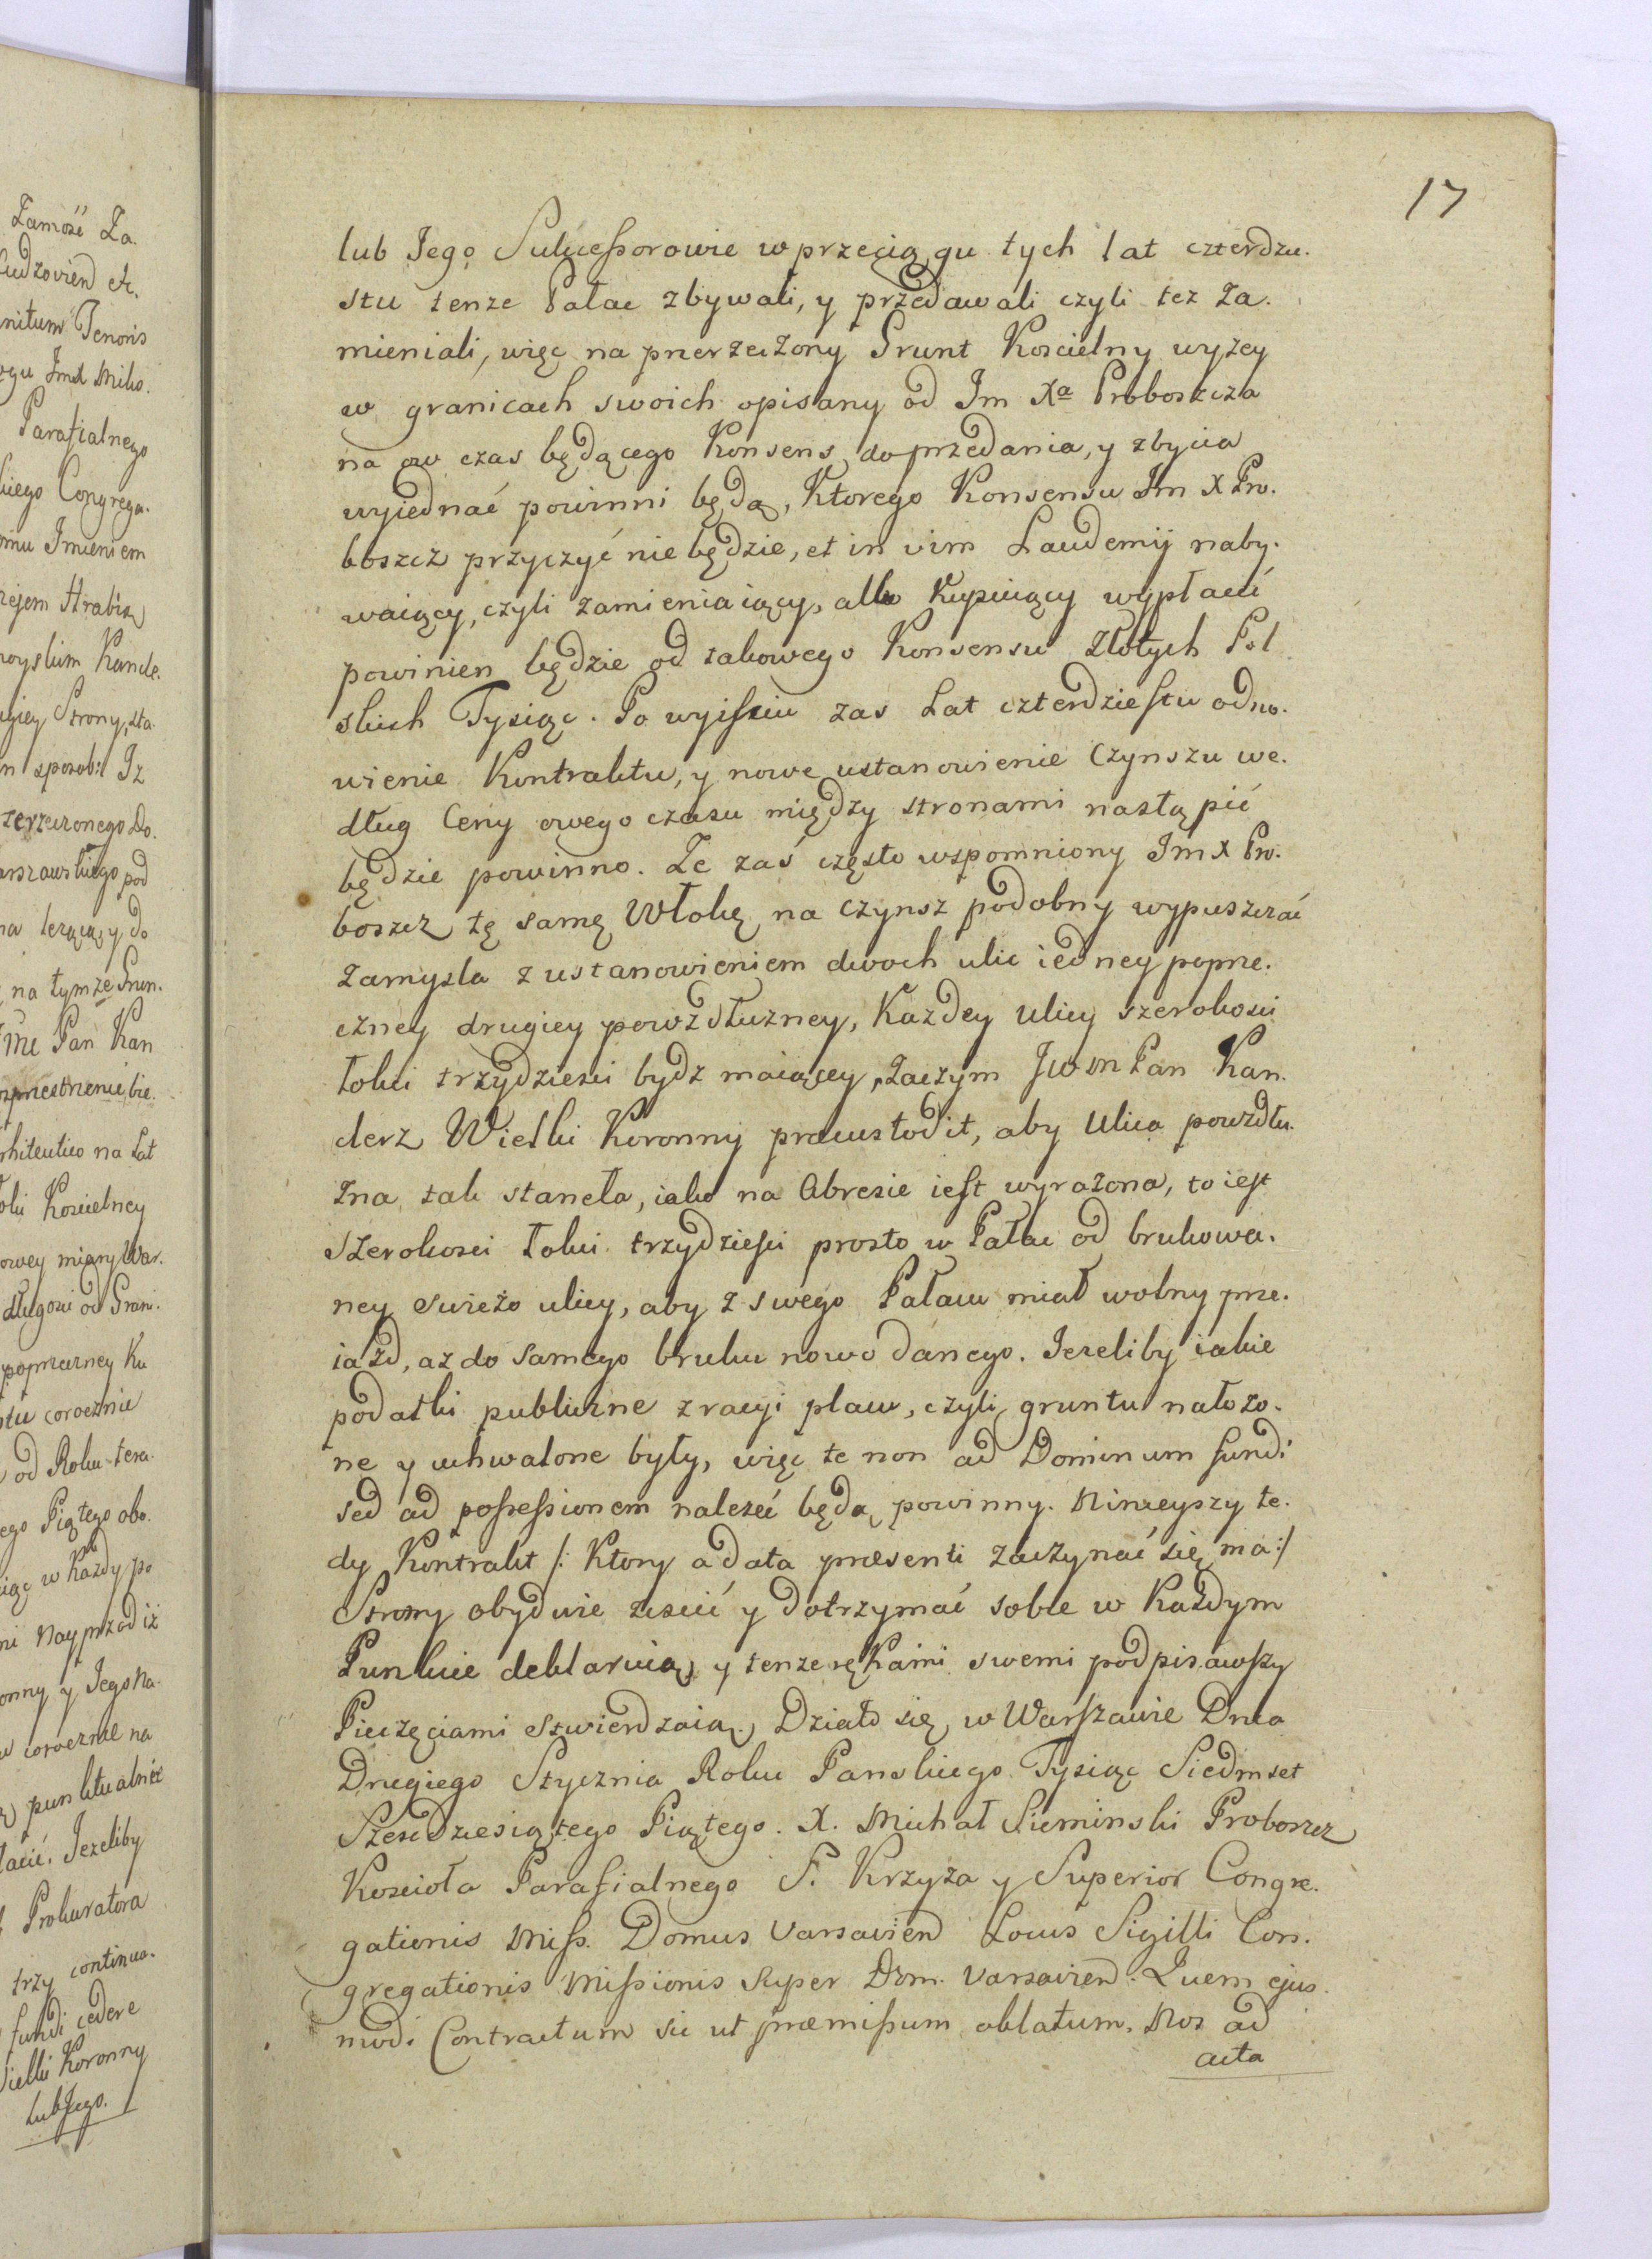 17
lub Jego Sukcessorowie w przeciągu tych lat czterdzie.
stu tenze Pałac zbywali, y przedawali czyli tez Za.
mieniali, więc na przerzeczony Grunt Koscielny wyzey
w granicach swoich opisany od Jm Xa Proboszcza
na ow czas będącego Konsens do przedania, y zbycia
wyiednać powinni będą, Ktorego Konsensu Jm X Pro.
boszcz przyczyć nie będzie, et in vim Laudemij naby.
waiący, czyli zamieniaiący, albo Kupuiący wypłacić
powinien będzie od takowego Konsensu Złotych Pol
skich Tysiąc. Po wyisciu zas Lat czterdziestu odno.
wienie Kontraktu, y nowe ustanowienie Czynszu we.
dług Ceny owego czasu między stronami nastąpić
będzie powinno. Ze zaś często wspomniony Jm X Pro.
boszcz tę samę Włokę na czynsz podobny wypuszczać
zamysla z ustanowieniem dwoch ulic iedney poprze.
czney drugiey powzdłuzney, Kazdey ulicy szerokosci
łokci trzydziesci bydz maiącey, Zaczym JWM Pan Kan.
clerz Wielki Koronny praecustodit, aby Ulica powzdłu.
zna tak staneła, iako na Abresie iest wyrazona, to iest
Szerokosci Łokci trzydziesci prosto w Pałac od brukowa.
ney swiezo ulicy, aby z swego Pałacu miał wolny prze.
iazd, az do samego bruku nowo danego. Jezeliby iakie
podatki publiczne z racyi placu, czyli gruntu nałozo.
ne y uchwalone były, więc te non ad Dominum fundi
sed ad possessionem nalezeć będą powinny. Ninieyszy te.
dy Kontrakt /: Ktory a data praesenti zaczynać się ma :/
Strony obydwie ziscić y dotrzymać sobie w Kazdym
Punkcie deklaruią, y tenze rękami swemi podpisawszy
Pieczęciami stwierdzaią. Działo się w Warszawie Dnia
Drugiego Stycznia Roku Panskiego Tysiąc Siedmset
Szescdziesiątego Piątego. X. Michał Sieminski Proboszcz
Koscioła Parafialnego S. Krzyza y Superior Congre.
gationis Miss. Domus Varsavien Locus Sigilli Con.
gregationis Missionis Super Dom. Varsavien. Quem ejus
modi Contractum sic ut praemissum oblatum, Nos ad
acta
Zamość Za.
nitum Tenoris
Parafialnego
Congrega.
Imieniem
Hrabią
Kancle.
Strony, sta.
sposob: Iz
pod
na tymze Grun.
Pan Kan
na Lat
Koscielney
miary War.
od Grani.
Ku
corocznie
od Roku tera
Piątego obo.
w Kazdy po
Nayprzod iz
y Jego Na.
corocznie na
punktualnie
Jezeliby
Prokuratora
trzy continua.
fundi cedere
Koronny
lub Jego.